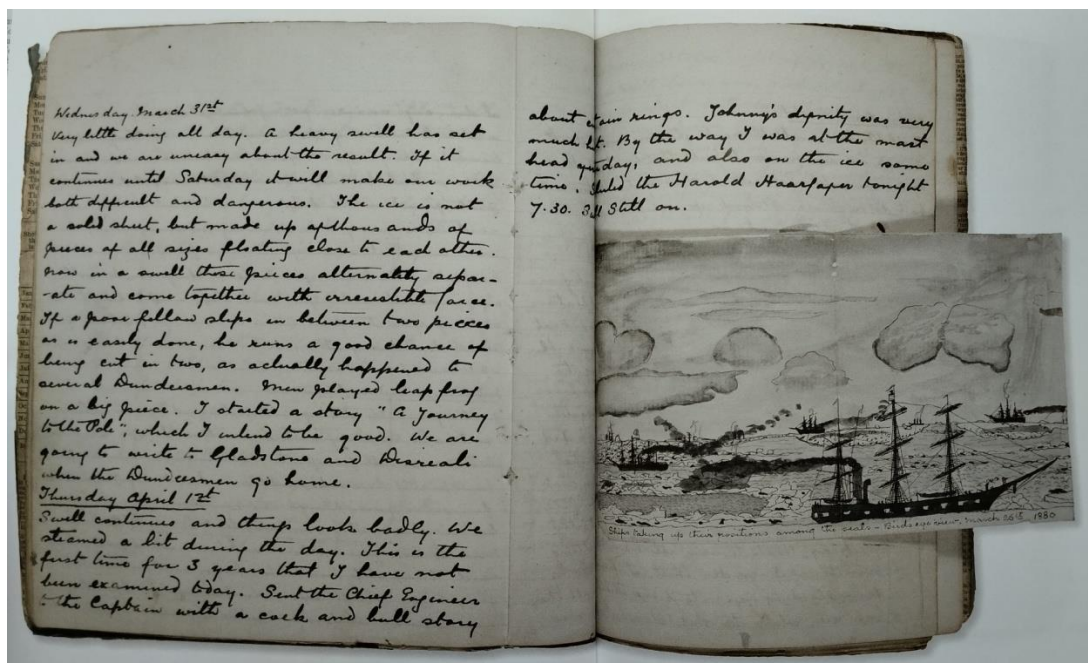 Wednesday March 31st
Very little doing all day. A heavy swell has set
in and we are uneasy about the result. If it
continues until Saturday it will make our work
both difficult and dangerous. The ice is not
a solid sheet, but made up of thousands of
pieces of all sizes floating close to each other.
Now in a swell these pieces alternately separ-
-ate and come together with irresistible force.
If a poor fellow slips in between two pieces
as is easily done, he runs a good chance of
being cut in two, as actually happened to
several Dundeesmen. Men played leap frog
on a big piece. I started a story "A Journey
to the Pole", which I intend to be good. We are
going to write to Gladstone and Disraeli
when the Dundeesmen go home.
Thursday April 1st
Swell continues and things look badly. We
steamed a bit during the day. This is the
first time for 3 years that I have not
been examined today. Sent the Chief Engineer
to the Captain with a cock and bull story
about rings. Johnny's dignity was very
much hit. By the way I was at the mast
head day, and also on the ice some
time. the Harold Haarfager tonight
7.30. Still on.
Ships taking up their positions among the seals - Birds eye view. March 26th 1880